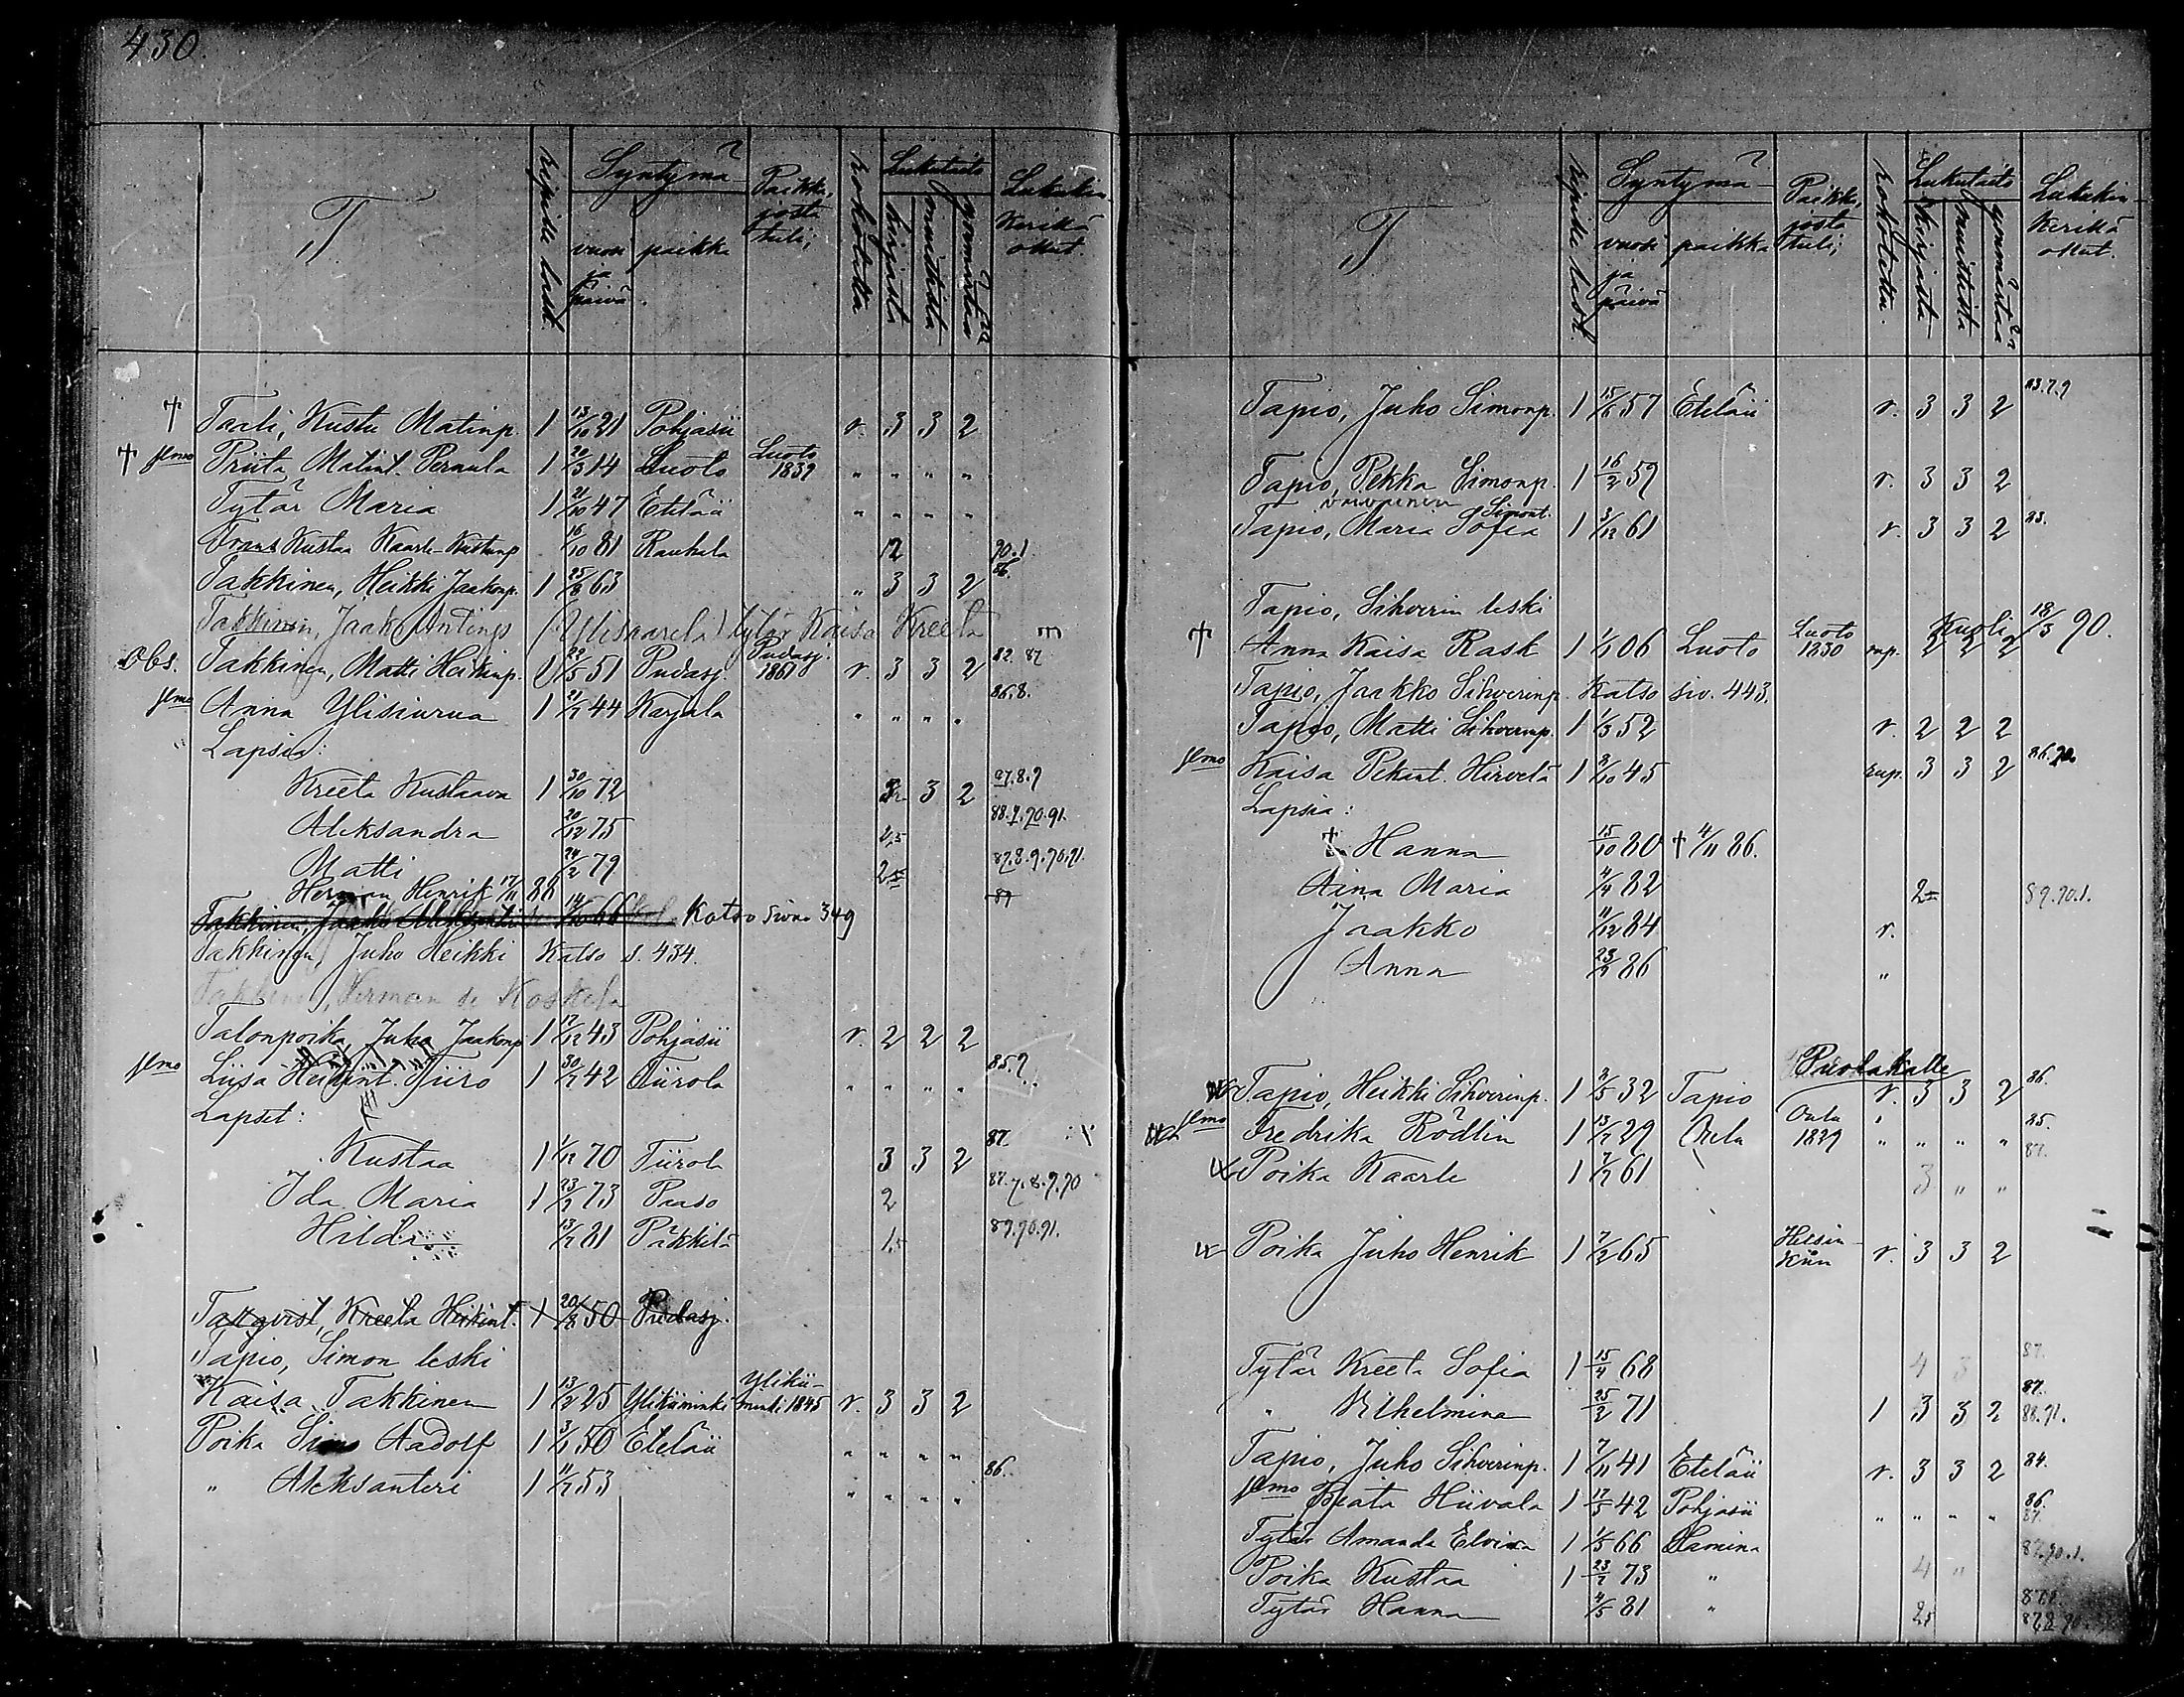 430.
T Syntymä Paikka, josta tuli; rokotettu Lukutaito Lukukin-
vuosi ja päivä paikka kirjasta muistista ymmärtää kerillä ollut.
† Taali, Kustu Matinp. 1 13/10 21 Pohjasii r. 3 3 2
† Priita Matint. Pernula 1 20/3 14 Luoto Luoto 1839 " " " "
Tytär Maria 1 21/10 47 Eteläii " " " "
Frans Kustaa Kaarle Kustinp 16/10 81 Rauhala 12 90.1
Takkinen, Heikki Jaakonp. 1 25/8 63 " 3 3 2 86.
Takkinen, Jaak Antinp (Ylisaarela) tytär Kaisa Kreeta
Obs. Takkinen, Matti Heikinp. 1 29/5 51 Pudasj. Pudasj. 1861 r. 3 3 2 82. 87
Anna Ylisiurua 1 21/7 44 Karjala " " " " 86.8.
Lapsia:
Kreeta Kustaava 1 30/10 72 3 2 87.8.9
Aleksandra 20/12 75 2,5 88.9.90.91.
Matti 24/2 79 87.8.9.90.91.
Herman Henrik 17/11 88
Takkinen, Jaakko 14/10 66 Katso sivu 349 87
Takkinen, Juho Heikki Katso s. 434.
Takkinen, Herman se Koskela
Talonpoika, Juho Jaakonp 1 17/12 43 Pohjasii r. 2 2 2
Liisa Heikint. Tiiro 1 30/7 42 Tiirola " " " " 85.9
Lapset:
Kustaa 1 1/12 70 Tiirola 3 3 2 87.
Ida Maria 1 23/7 73 Paaso 2 87.7.8.9.90
Hilda 13/7 81 Pakkila 1,5 89.90.91.
Tarqvist, Kreeta Heikint. 1 20/8 50 Pudasj.
Tapio, Simon leski
Kaisa Takkinen 1 13/2 25 Ylikiiminki Ylikii-minki 1845 r. 3 3 2
Poika Simo Aadolf 1 3/1 50 Eteläii " " " "
" Aleksanteri 1 11/7 53 " " " " 86.
T Syntymä Paikka, josta tuli; rokotettu. Lukutaito Lukukin-
vuosi ja päivä paikka kirjasta muistista ymmärtää kerillä ollut.
Tapio, Juho Simonp. 1 15/6 57 Eteläii r. 3 3 2 83.7.9
Tapio, Pekka Simonp. 1 16/2 59 r. 3 3 2
vaivainen
Tapio, Maria Sofia Simont. 1 3/12 61 r. 3 3 2 83.
Tapio, Sihverin leski
† Anna Kaisa Rask 1 1/1 06 Luoto Luoto 1830 rup. 2 2 2 Kuoli 18/3 90.
Tapio, Jaakko Sihverinp. Katso siv. 443.
Tapio, Matti Sihverinp. 1 1/3 52 r. 2 2 2
Kaisa Pekant. Hirvelä 1 9/10 45 rup. 3 3 2 86.90.
Lapsia:
† Hanna 15/10 80 † 4/11 86.
Aina Maria 4/4 82 2 89.90.1.
Jaakko 11/12 84 r.
Anna 23/7 86 "
Puotakalle
Tapio, Heikki Sihverinp. 1 3/5 32 Tapio r. 3 3 2 86.
Fredrika Rödlin 1 13/7 29 Oulu Oulu 1839 " " " " 85.
Poika Kaarle 1 7/7 61 3 " " 87.
Poika Juho Henrik 1 7/2 65 Helsin-kiin r. 3 3 2
Tytär Kreeta Sofia 1 15/4 68 4 3 87.
" Vilhelmina 25/2 71 1 3 3 2 87. 88.91.
Tapio, Juho Sihverinp. 1 7/11 41 Eteläii r. 3 3 2 84.
Beata Hiivala 1 17/5 42 Pohjasii " " " " 86. 87.
Tytär Amanda Elvira 1 1/5 66 Hamina
Poika Kustaa 1 23/7 73 " 4 " 87.90.1.
Tytär Hanna 4/5 81 " 2,5